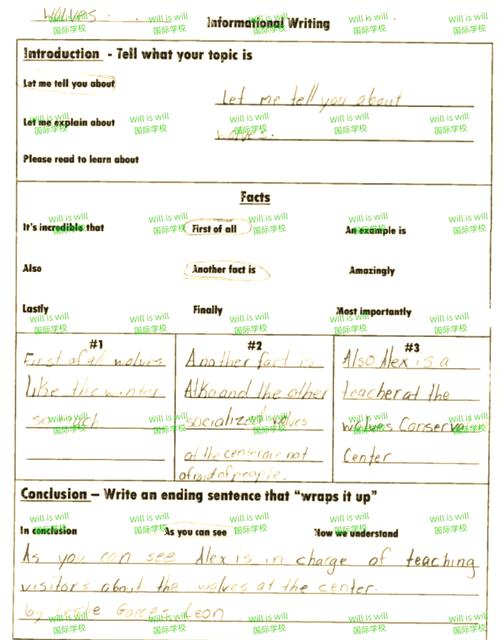 wolves
Informational Writing
Introduction - Tell what your topic is
Let me tell you about
Let me tell you about
Let me explain about
wolves.
Please read to learn about
Facts
It's incredible that
First of all
An example is
Also
Another fact is
Amazingly
Lastly
Finally
Most importantly
#1
First of all wolves
like the winter
so much
#2
Another fact is
Alka and the other
socialized wolves
at the center are not
afraid of people.
#3
Also Alex is a
teacher at the
wolves Conserva
Center
Conclusion – Write an ending sentence that "wraps it up"
In conclusion
As you can see
Now we understand
As you can see Alex is in charge of teaching
visitors about the wolves at the center.
by Leslie Garces Leon
Will is will
国际学校